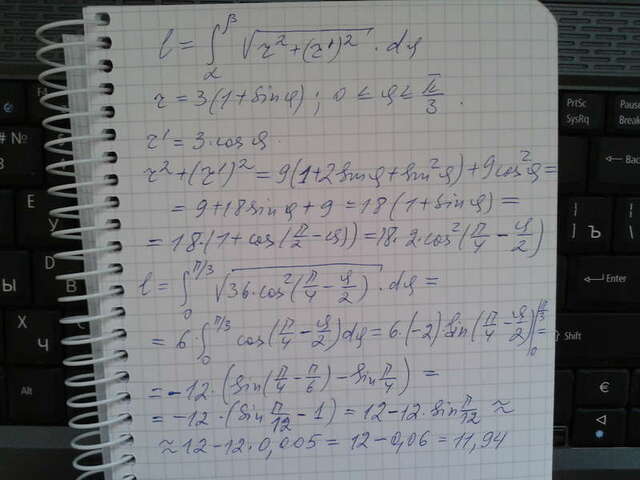 l = ∫_α^β √(r² + (r')²) · dφ
r = 3(1 + sin φ) ; 0 ≤ φ ≤ π/3 .
r' = 3 · cos φ .
r² + (r')² = 9(1 + 2 sin φ + sin² φ) + 9 cos² φ =
= 9 + 18 sin φ + 9 = 18(1 + sin φ) =
= 18 · (1 + cos(π/2 − φ)) = 18 · 2 cos²(π/4 − φ/2)
l = ∫_0^{π/3} √(36 · cos²(π/4 − φ/2)) · dφ =
= 6 · ∫_0^{π/3} cos(π/4 − φ/2) dφ = 6 · (−2) sin(π/4 − φ/2) |_0^{π/3} =
= −12 · (sin(π/4 − π/6) − sin π/4) =
= −12 · (sin π/12 − 1) = 12 − 12 · sin π/12 ≈
≈ 12 − 12 · 0,005 = 12 − 0,06 = 11,94
PrtSc
SysRq
Pause
Break
Back
Enter
Shift
Alt
Ъ
\
€
№
#
3
F
E
У
Ы
X
Ч